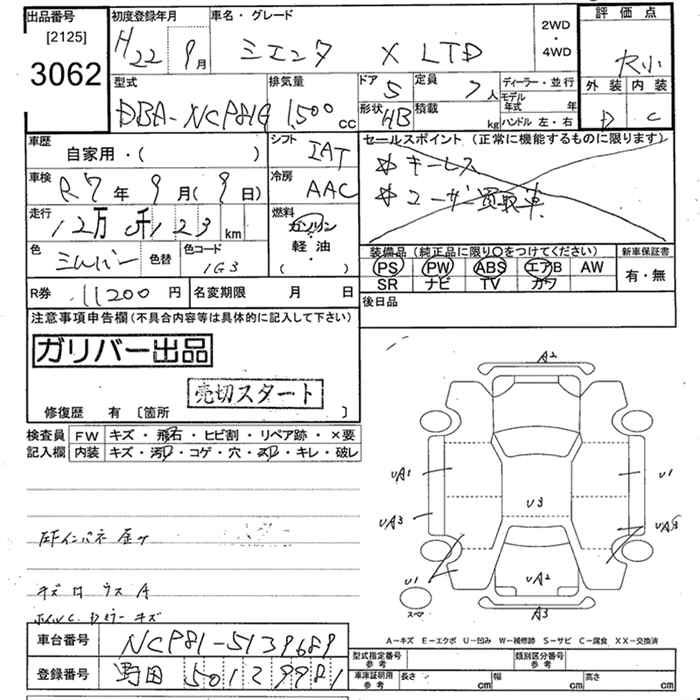 出品番号 初度登録年月 車名・グレード 2WD ・ 4WD 評価点
[2125]
3062
H22 9月 シエンタ X LTD
外装 内装
D C
型式 排気量 ドア 定員 ディーラー・並行
DBA-NCP81G 1,500cc 5 7人 モデル年式 年
形状 HB 積載 kg ハンドル 左・右
車歴 シフト セールスポイント (正常に機能するものに限ります)
自家用・( ) IAT
☆ キーレス
☆ ユーザー買取車
車検 冷房
R7年9月(9日) AAC
走行 燃料
12万 千123km ガソリン・軽油・( )
色 色替 色コード
シルバー 1G3
装備品 (純正品に限り○をつけてください) 新車保証書
PS PW ABS エアB AW 有・無
SR ナビ TV カワ
R券 11200円 名変期限 月 日
後日品
注意事項申告欄(不具合内容等は具体的に記入して下さい)
ガリバー出品
売切スタート
修復歴 有 [箇所 ]
検査員 FW キズ・飛石・ヒビ割・リペア跡・×要
記入欄 内装 キズ・汚・コゲ・穴・・キレ・破レ
A2
UA1 U1
UA3 U3
U1 UA2
スマ A3
インパネ
A-キズ E-エクボ U-凹み W-補修跡 S-サビ C-腐食 XX-交換済
車台番号 NCP81-5139689
登録番号 野田 501 ス 9981
型式指定番号 参考 類別区分番号 参考
車庫証明用 参考 長さ cm 幅 cm 高さ cm